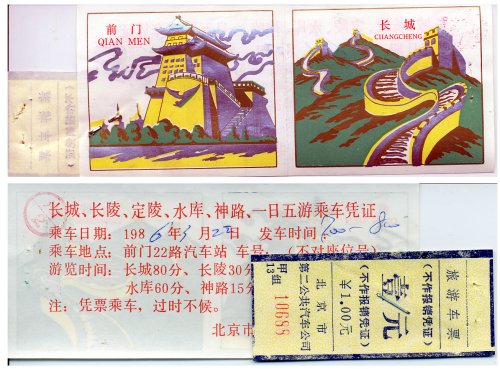 前门
QIAN MEN
长城
CHANGCHENG
长城、长陵、定陵、水库、神路、一日五游乘车凭证
乘车日期：1986年5月22日 发车时间：700-800
乘车地点：前门22路汽车站 车号： （不对座位号）
游览时间：长城80分、长陵30分
水库60分、神路15分
注：凭票乘车，过时不候。
北京市
旅游车票
（不作报销凭证）
壹元
（不作报销凭证）
￥1.00元
北京市
第二公共汽车公司
甲组 10688
13